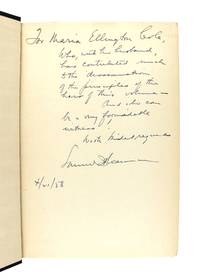 For Maria Ellington Cole,
Who, with her husband,
has contributed much
to the dissemination
of the principles of the
hero of this volume —
And who can
be a very formidable
witness!
With kindest regards
4/21/58